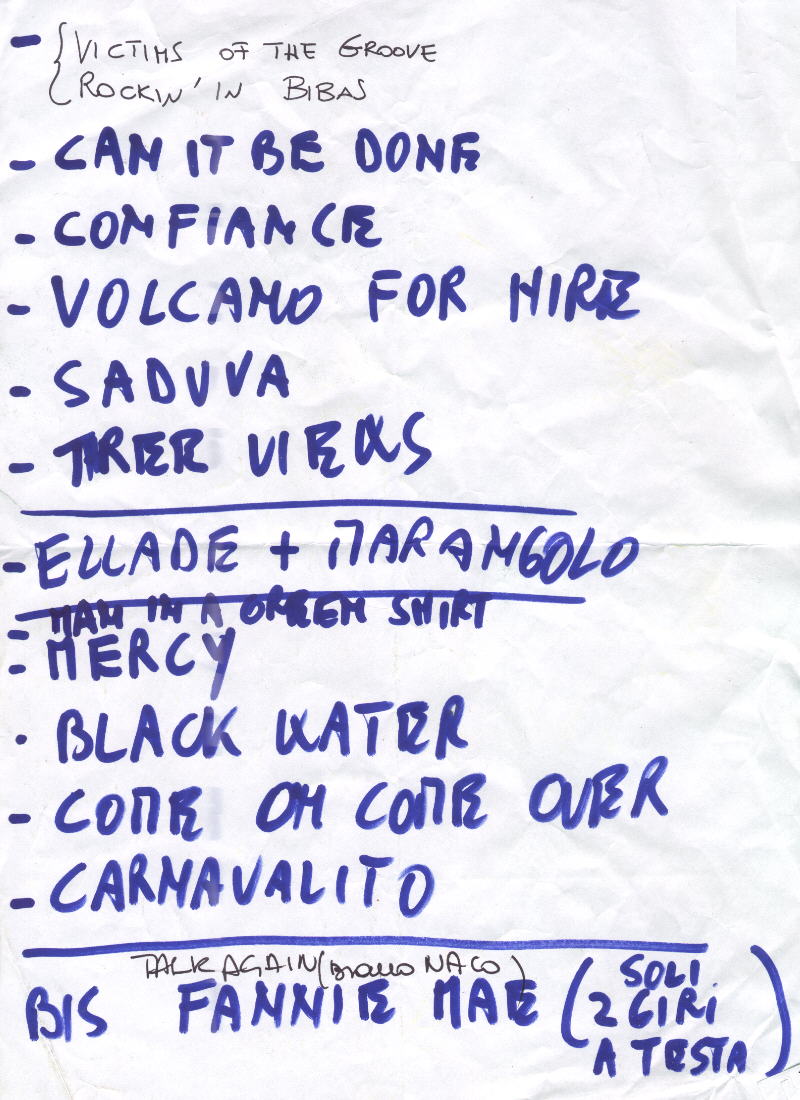 - { VICTIMS OF THE GROOVE
ROCKIN' IN BIBAS
- CAN IT BE DONE
- CONFIANCE
- VOLCANO FOR HIRE
- SADUVA
- TIRER VIEWS
- ELLADE + MARANGOLO
- MAN IN A GREEN SHIRT
- MERCY
· BLACK WATER
- COME ON COME OVER
- CARNAVALITO
TALK AGAIN (BRANO NACO)
BIS FANNIE MAE (SOLI
2 GIRI
A TESTA)